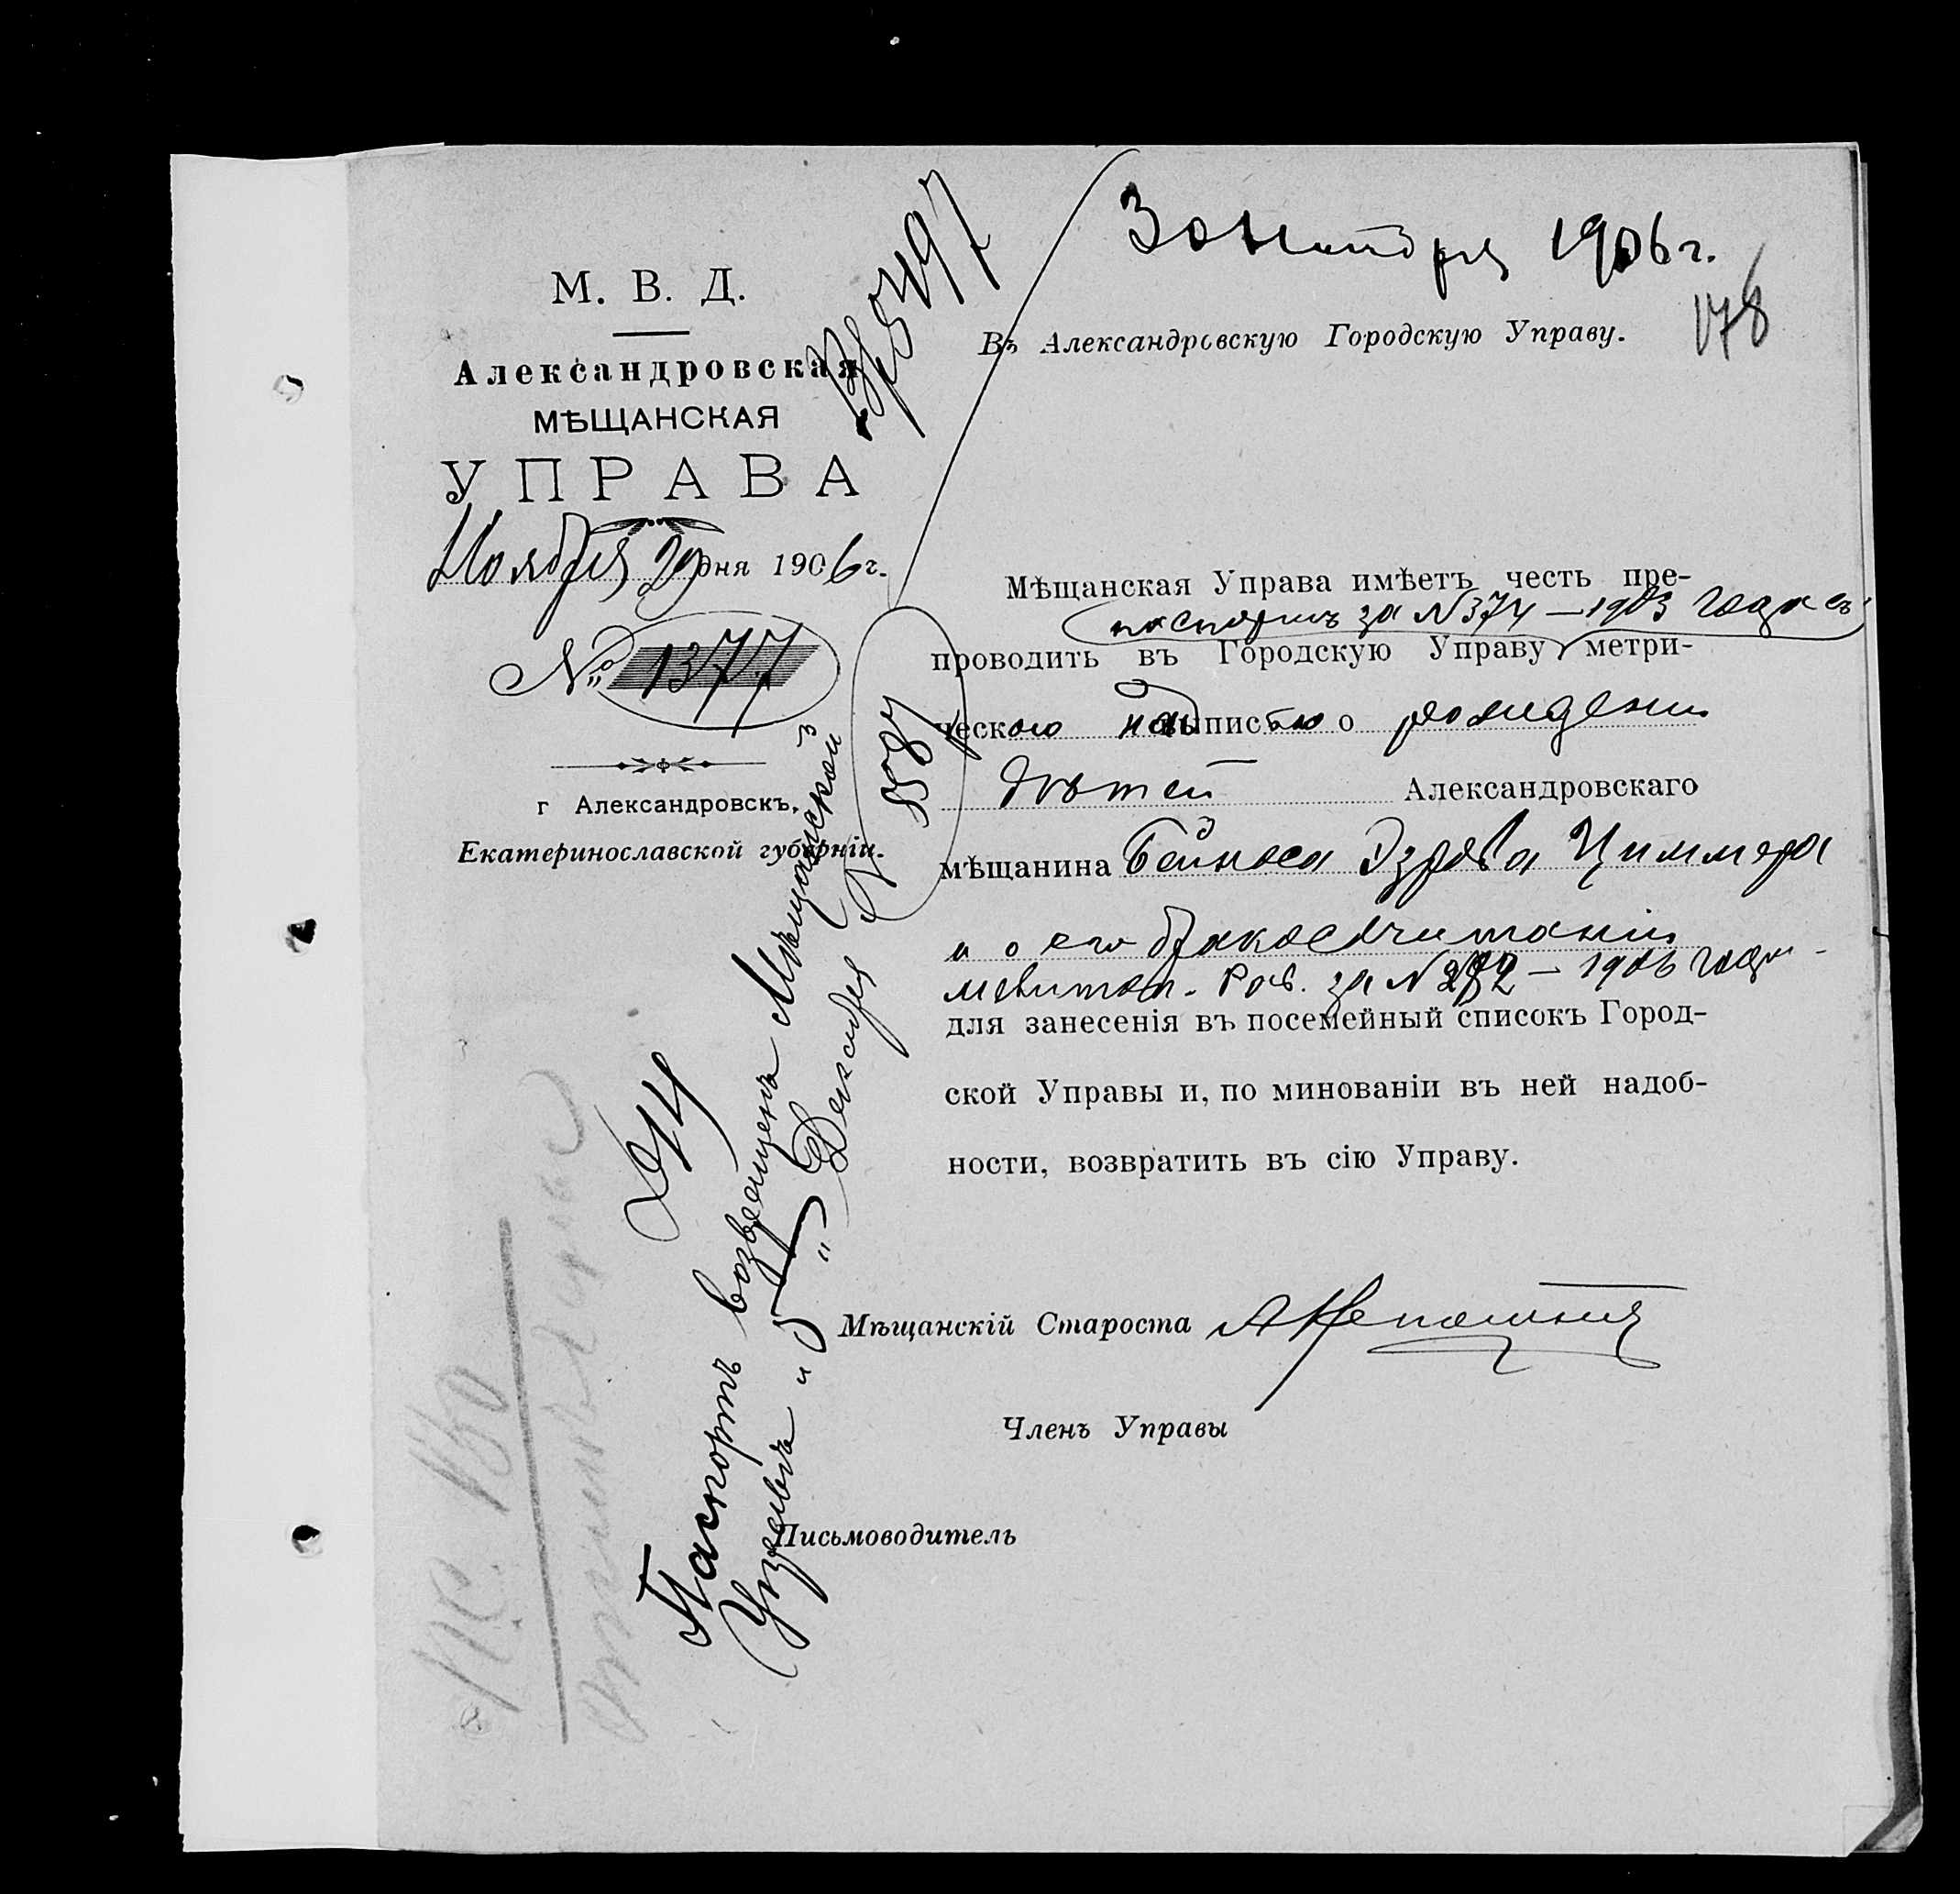 30 Ноября 1906 г.
178
М. В. Д.
Александровская
МѢЩАНСКАЯ
УПРАВА
Ноября 29 дня 1906 г.
№ 1377
г Александровскъ,
Екатеринославской губерніи.
Вх 5497
Въ Александровскую Городскую Управу.
Мѣщанская Управа имѣетъ честь пре-
паспортъ за № 374 – 1903 года съ
проводить въ Городскую Управу метри-
ческою выписью о рожденіи
дѣтей Александровскаго
мѣщанина Бейноса Эзрова Циммера
и о его бракосочитаніи
Мелитоп. Рав. за № 292 – 1906 года
для занесенія въ посемейный списокъ Город-
ской Управы и, по минованіи въ ней надоб-
ности, возвратить въ сію Управу.
Мѣщанскій Староста
Членъ Управы
Письмоводитель
Паспортъ возвращенъ Мѣщанской
Управѣ „5„ Декабря
П.С. 150